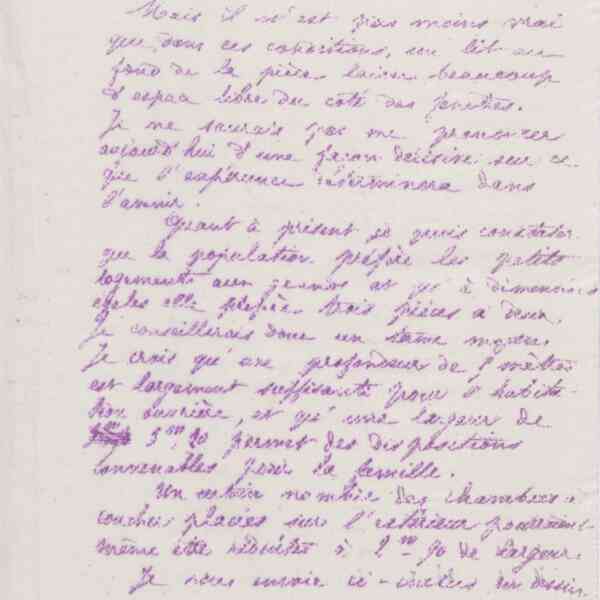 Mais il n'est pas moins vrai
que dans ces conditions, un lit au
fond de la pièce laisse beaucoup
d'espace libre du côté des fenêtres.
Je ne saurais pas me prononcer
aujourd'hui d'une façon décisive sur ce
que l'expérience déterminera dans
l'avenir.
Quant à présent je puis constater
que la population préfère les petits
logements aux grands et qu'à dimensions
égales elle préfère trois pièces à deux.
Je conseillerais donc un
Je crois qu'une profondeur de mètres
est largement suffisante pour l'habita-
tion ouvrière, et qu'une largeur de
3m,90 permet des dispositions
convenables pour la famille.
Un certain nombre des chambres à
coucher placées sur l'extérieur pourraient
même être réduites à 2m 90 de largeur.
Je vous envoie ci-inclus un dessin